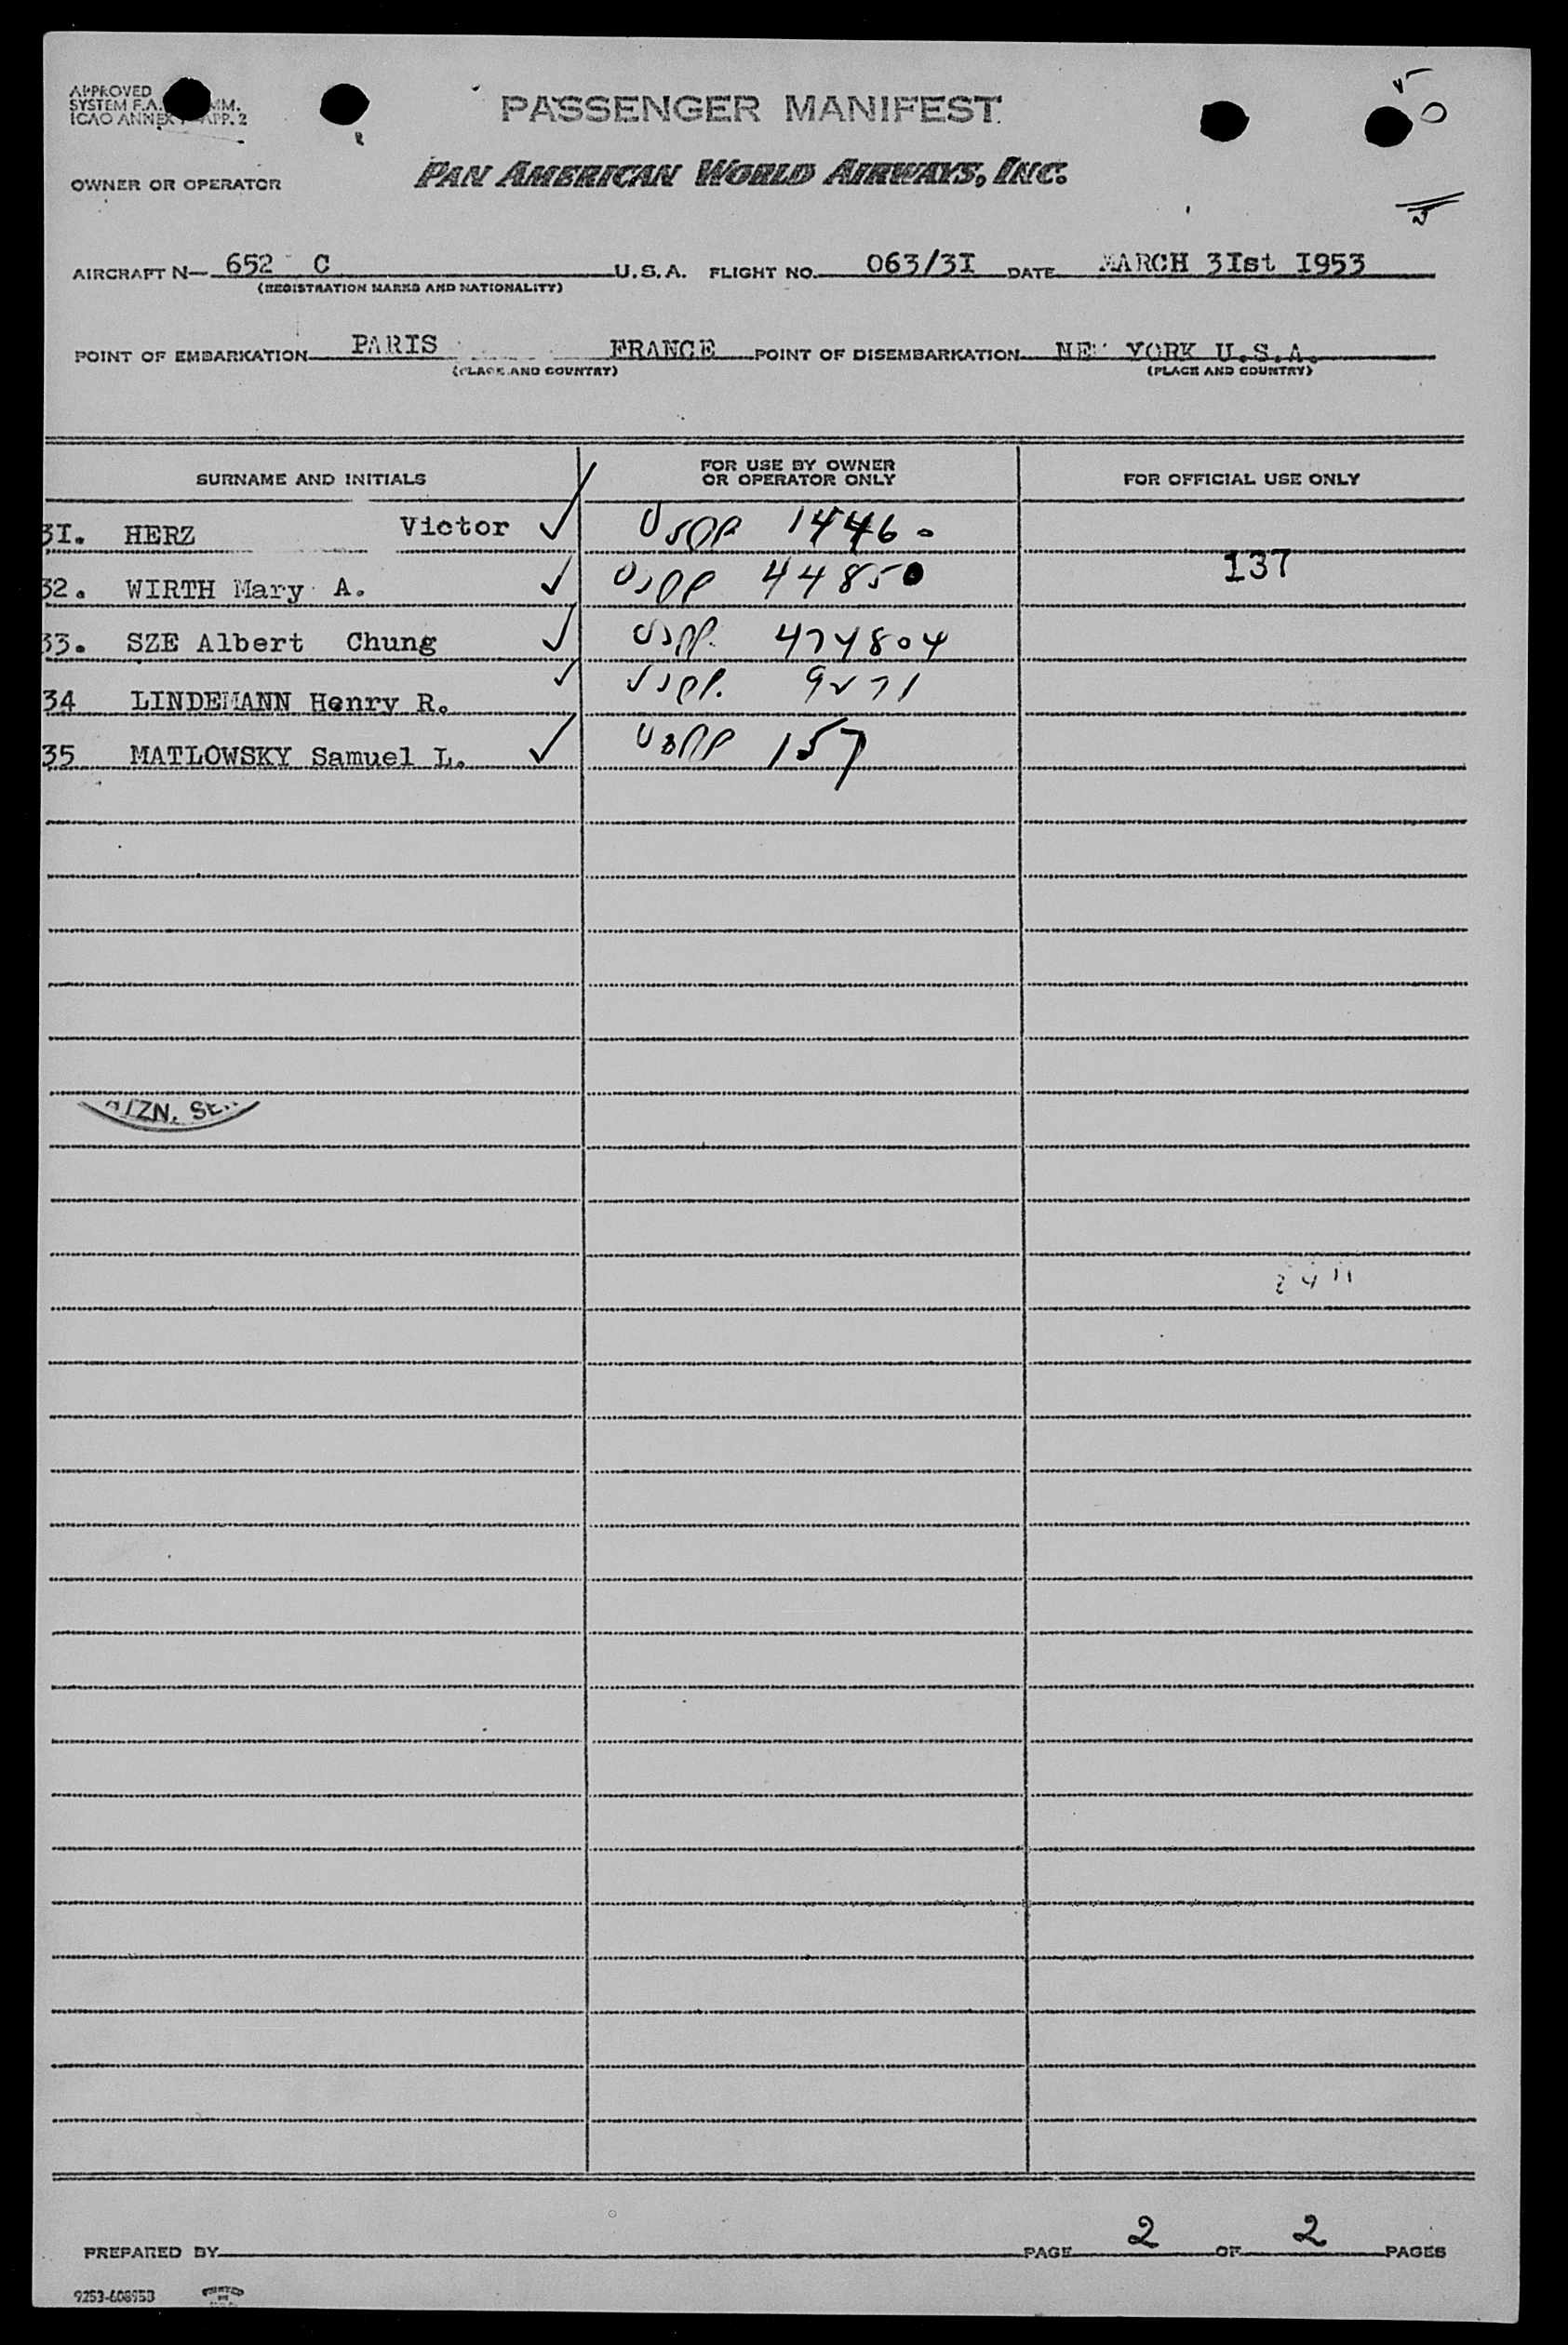 APPROVED
SYSTEM F.A. MM.
ICAO ANNEX APP. 2
PASSENGER MANIFEST
OWNER OR OPERATOR PAN AMERICAN WORLD AIRWAYS, INC.
AIRCRAFT N— 652 C U.S.A. FLIGHT NO. 063/3I DATE MARCH 3Ist I953
(REGISTRATION MARKS AND NATIONALITY)
POINT OF EMBARKATION PARIS FRANCE POINT OF DISEMBARKATION NEW YORK U.S.A.
(PLACE AND COUNTRY) (PLACE AND COUNTRY)
SURNAME AND INITIALS FOR USE BY OWNER OR OPERATOR ONLY FOR OFFICIAL USE ONLY
3I. HERZ Victor ✓ USPP 14460
32. WIRTH Mary A. ✓ USPP 44850 137
33. SZE Albert Chung ✓ USPP. 474804
34 LINDEMANN Henry R. ✓ USPP. 9271
35 MATLOWSKY Samuel L. ✓ USPP 157
ATZN. SER
PREPARED BY PAGE 2 OF 2 PAGES
9253-608953